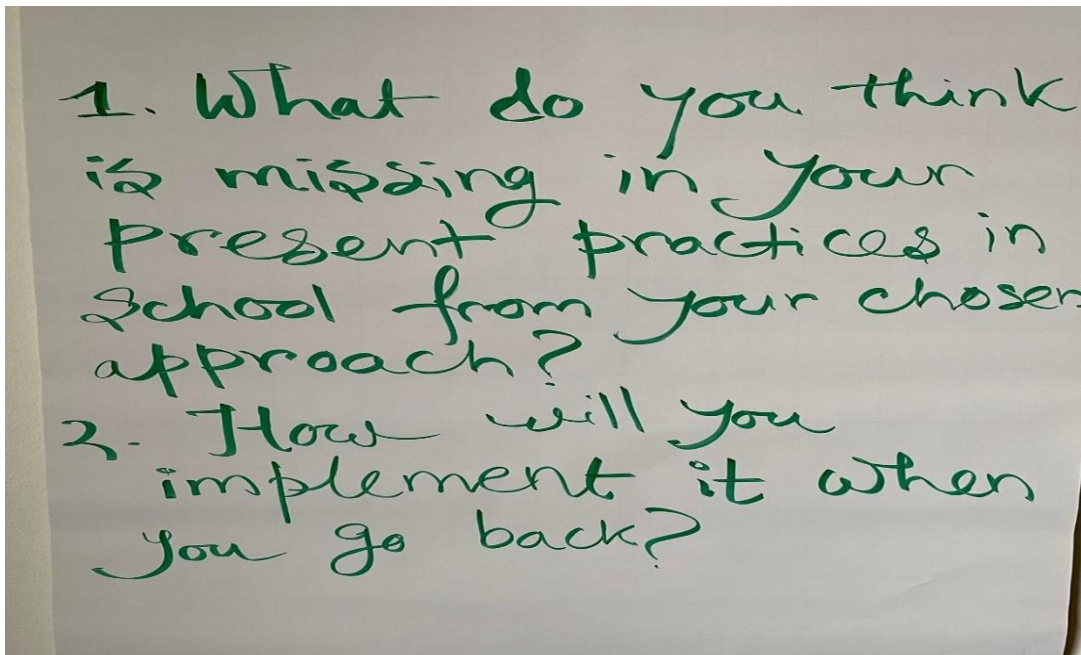 1. What do you think
is missing in your
present practices in
school from your chosen
approach?
2. How will you
implement it when
you go back?